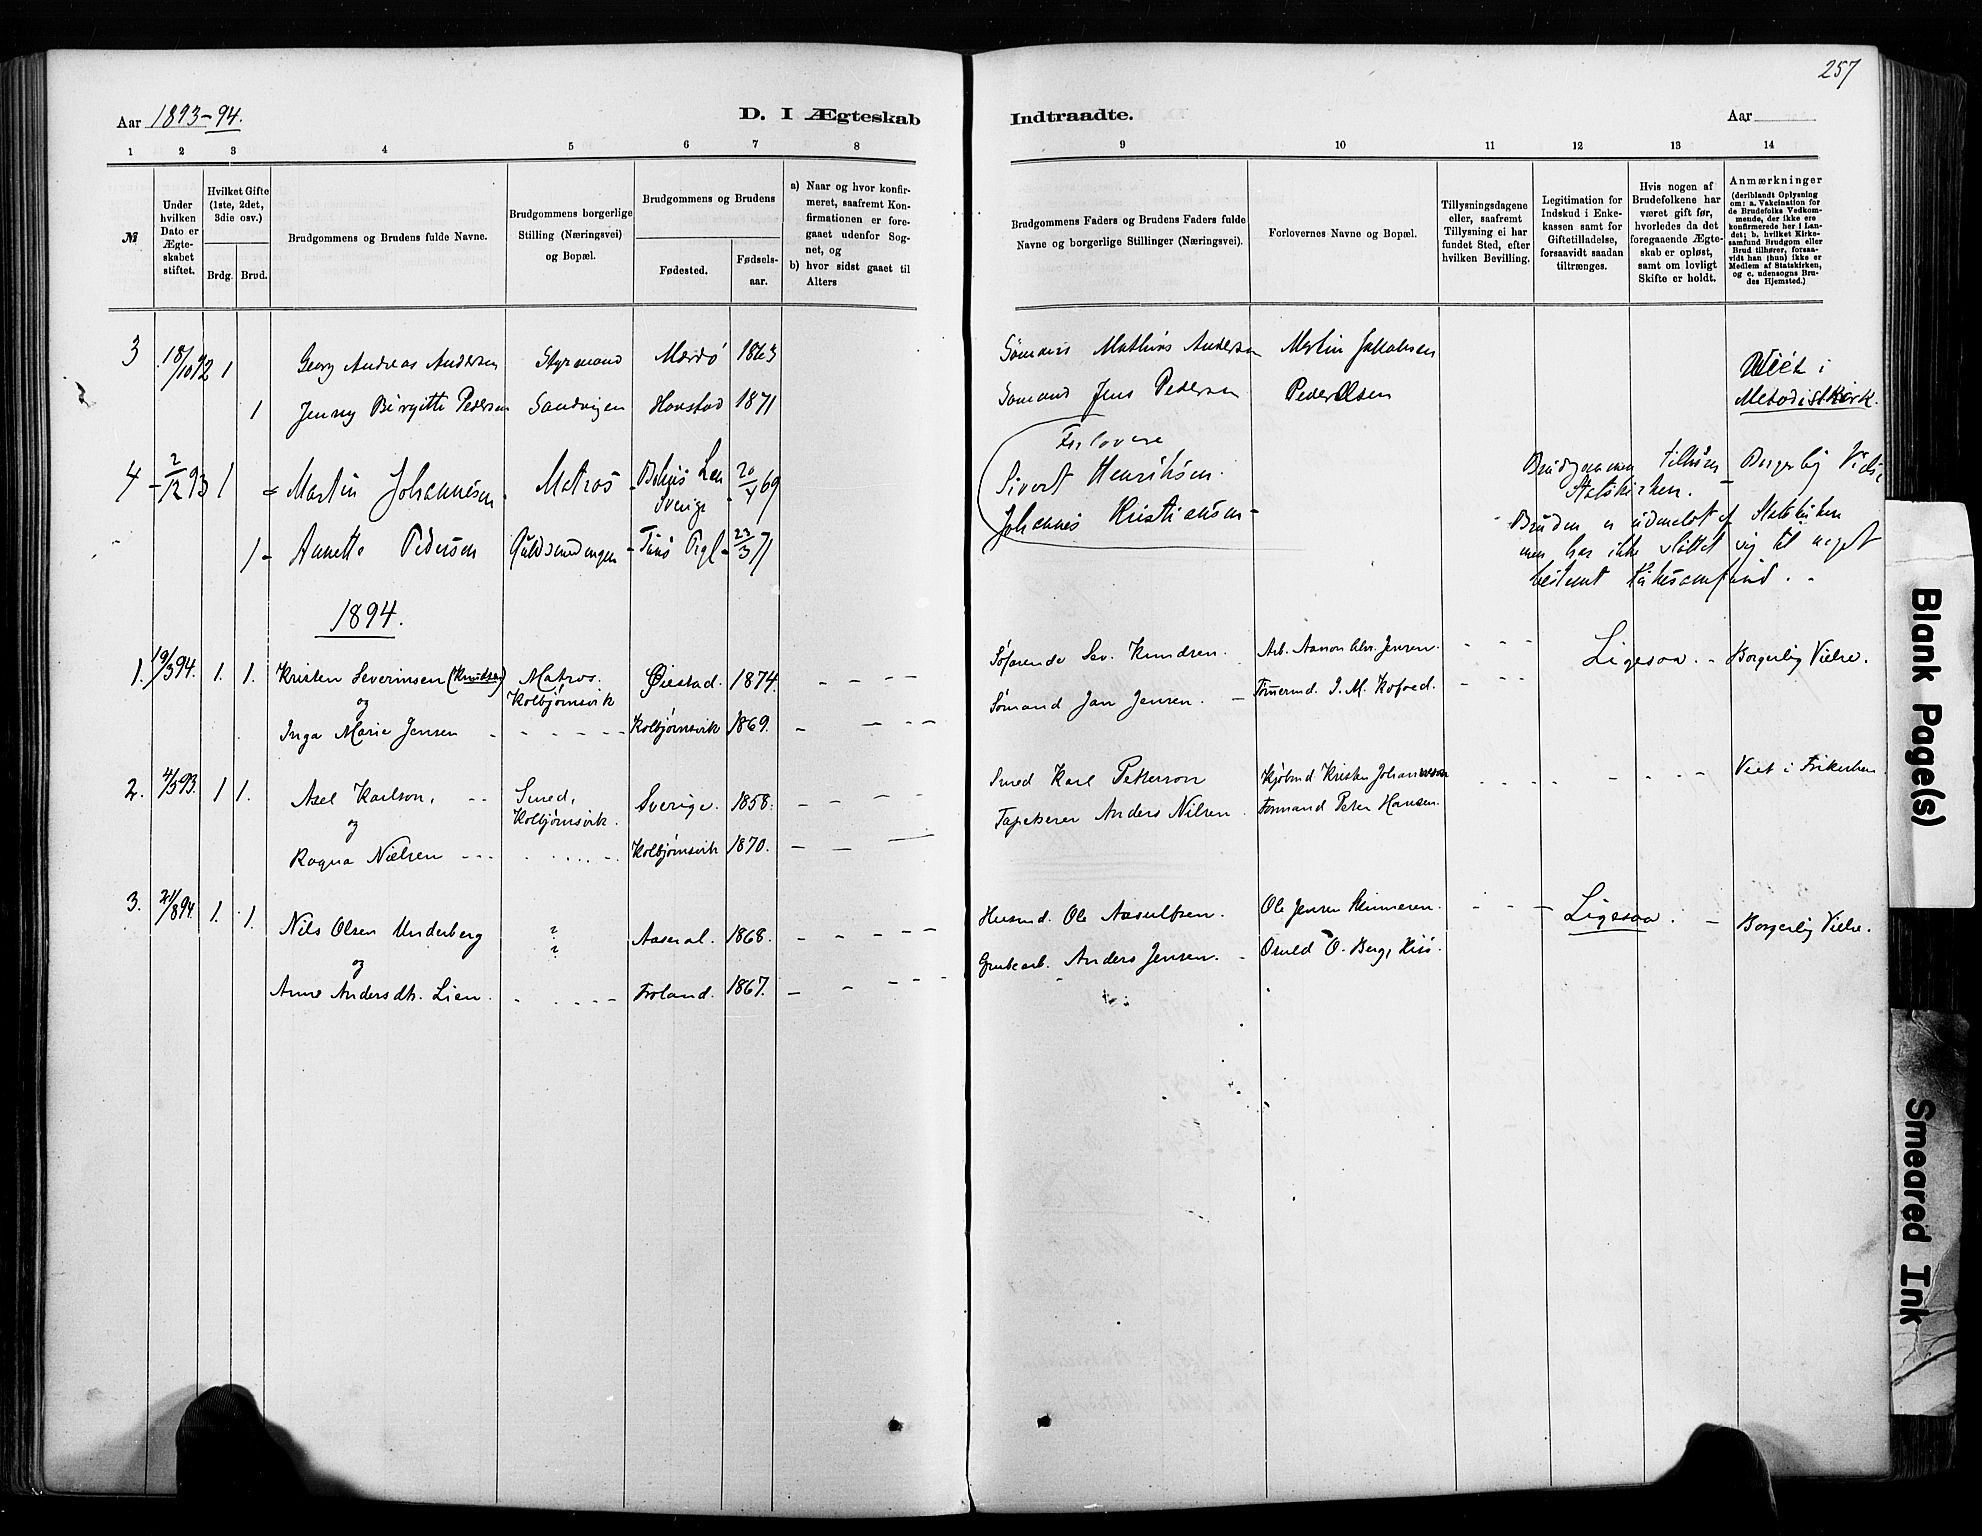 257
Aar 1893-94.
D. I Ægteskab
Indtraadte.
Aar
1 2 3 4 5 6 7 8
9 10 11 12 13 14
№
Under hvilken Dato er Ægteskabet stiftet.
Hvilket Gifte (1ste, 2det, 3die osv.)
Brdg. Brud.
Brudgommens og Brudens fulde Navne.
Brudgommens borgerlige Stilling (Næringsvei) og Bopæl.
Brudgommens og Brudens
Fødested.
Fødsels-aar.
a) Naar og hvor konfirmeret, saafremt Konfirmationen er foregaaet udenfor Sognet, og
b) hvor sidst gaaet til Alters
Brudgommens Faders og Brudens Faders fulde Navne og borgerlige Stillinger (Næringsvei).
Forlovernes Navne og Bopæl.
Tillysningsdagene eller, saafremt Tillysning ei har fundet Sted, efter hvilken Bevilling.
Legitimation for Indskud i Enkekassen samt for Giftetilladelse, forsaavidt saadan tiltrænges.
Hvis nogen af Brudefolkene har været gift før, hvorledes da det foregaaende Ægteskab er opløst, samt om lovligt Skifte er holdt.
Anmærkninger (deriblandt Oplysning om: a. Vakcination for de Brudefolks Vedkommende, der ikke ere konfirmerede her i Landet; b. hvilket Kirkesamfund Brudgom eller Brud tilhører, forsaavidt han (hun) ikke er Medlem af Statskirken, og c. udensogns Brudes Hjemsted.)
3 18/10 92 1 Georg Andreas Andersen Styrmand Mærdø 1863 Mathias Andersen Martin Jakobsen Viet i
1 Jenny Birgitte Pedersen Sandvigen Havstad 1871 Sømand Jens Pedersen Peder Olsen Metodistkirk.
4 2/12 93 1 Martin Johannesen Matros Sverige 69 Forlovere Sivert Henriksen Brudgommen Statskirken. Borgerlig
1 Annette Pedersen 23/3 71 Johannes Kristiansen Bruden er udmeldt af Statskirken
men har ikke sluttet sig til noget
bestemt
1894.
1. 19/3 94. 1. 1. Kristen Severinsen (Knudsen) Matros. Kolbjørnsvik Øiestad. 1874. Søfarende Sev. Knudsen. Arb. Aanon Chr. Jensen. Ligesaa. Borgerlig Vielse.
og
Inga Marie Jensen Kolbjørnsvik 1869. Sømand Jan Jensen. Tømermd. J. M. Kofoed.
2. 4/5 93. 1 1. Axel Karlson, Smed, Kolbjørnsvik. Sverige. 1858. Smed Karl Petterson Kristen Johannessen Viet i Frikirken
og
Ragna Nielsen Kolbjørnsvik 1870. Tapetserer Anders Nilsen Formand Peter Hansen.
3. 21/8 94. 1. 1. Nils Olsen Underberg ? ? Aaseral. 1868. Husmd. Ole Aasulfsen. Ole Jensen Ligesaa. Borgerlig Vielse.
og
Anne Andersdtr. Lien. Froland. 1867. Grubearb. Anders Jensen. Osuld O. Berg, Hisø.
Blank Page(s)
Smeared Ink